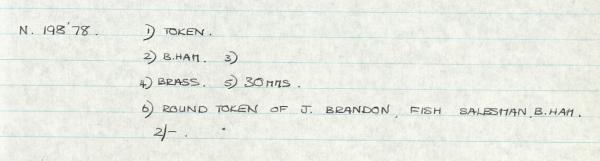 N. 198'78. 1) TOKEN.
2) B.HAM. 3)
4) BRASS. 5) 30MMS.
6) ROUND TOKEN OF J. BRANDON, FISH SALESMAN, B.HAM.
2/-.